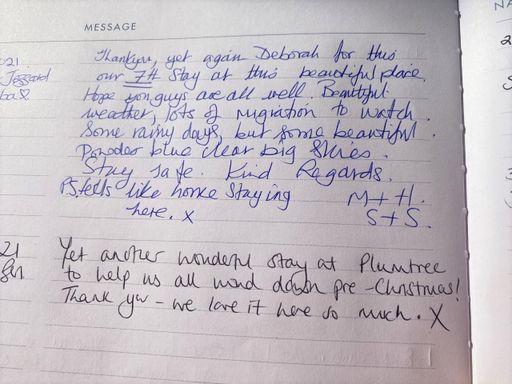 MESSAGE
NA
021.
Thankyou, yet again Deborah for this
our 7th Stay at this beautiful place.
Hope you guys are all well. Beautiful
weather, lots of migration to watch.
Some rainy days, but some beautiful.
Powder blue clear big Skies.
Stay safe. Kind Regards.
PS. feels like home staying
here. x
M + H.
S + S.
21
Yet another wonderful stay at Plumtree
to help us all wind down pre-Christmas!
Thank you - we love it here so much. X